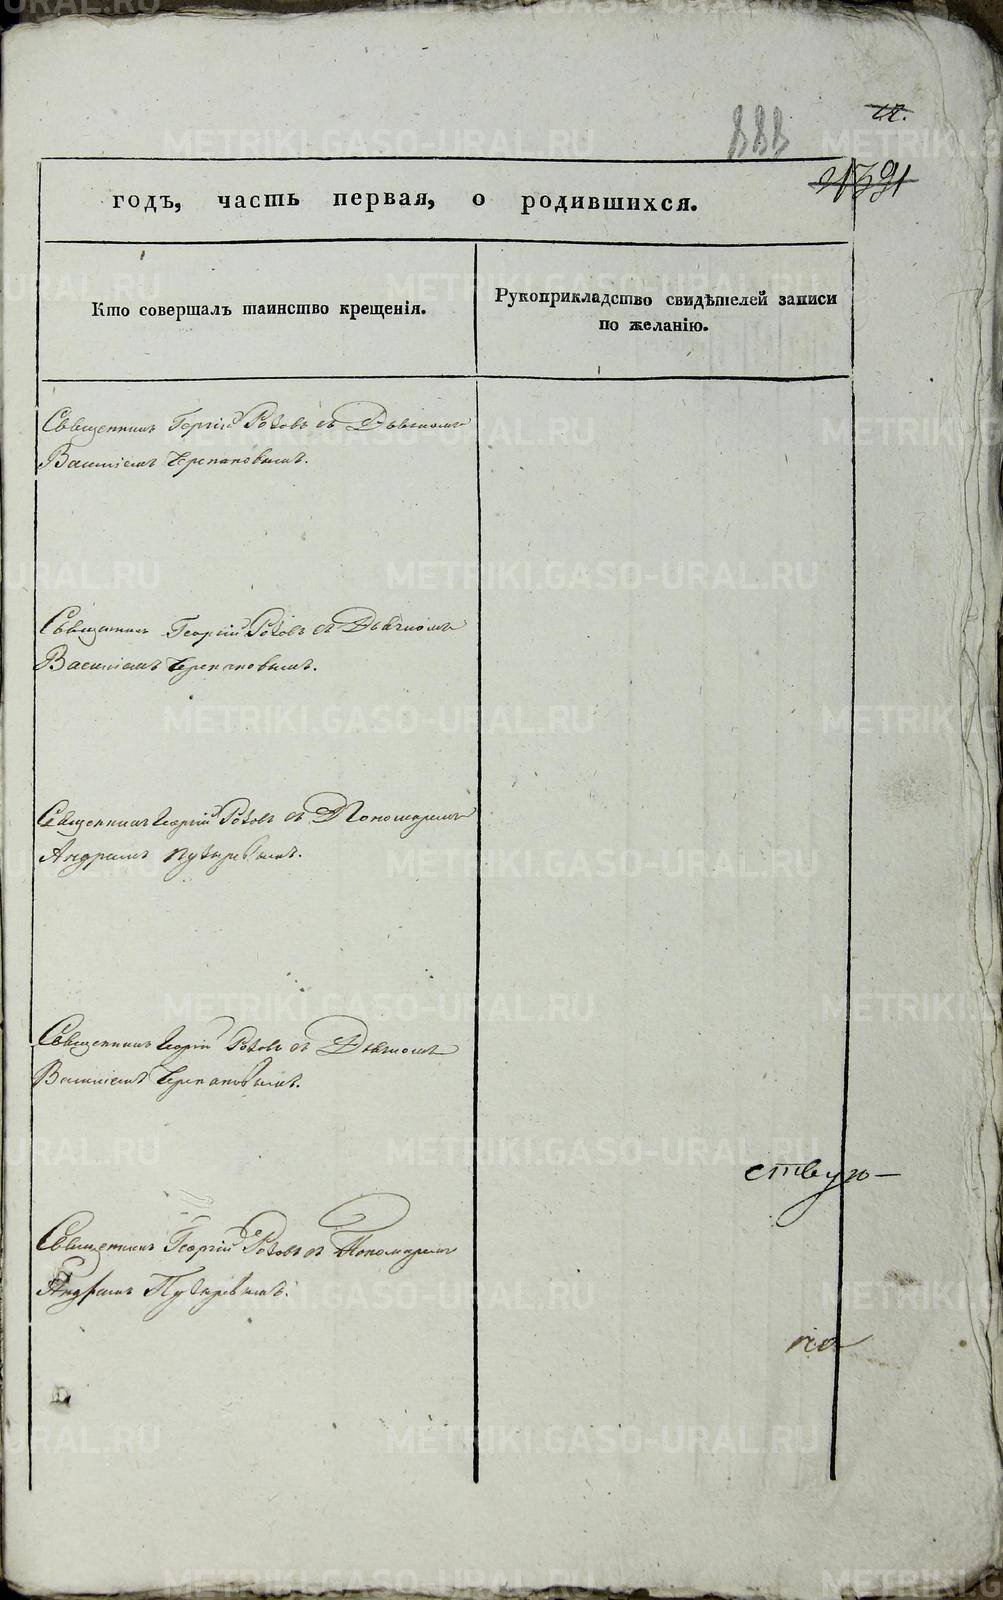 888
годъ, часть первая, о родившихся.
Кто совершалъ таинство крещенія.
Рукоприкладство свидѣтелей записи
по желанію.
Священникъ Георгій съ Дьячкомъ
Василіемъ Черепановымъ.
Священникъ Георгій съ Дьячкомъ
Василіемъ Черепановымъ.
Священникъ Георгій съ Пономаремъ
Андреемъ Пузыревымъ.
Священникъ Георгій съ Дьячкомъ
Василіемъ Черепановымъ.
ствую
Священникъ Георгій съ Пономаремъ
Андреемъ Пузыревымъ.
METRIKI.GASO-URAL.RU